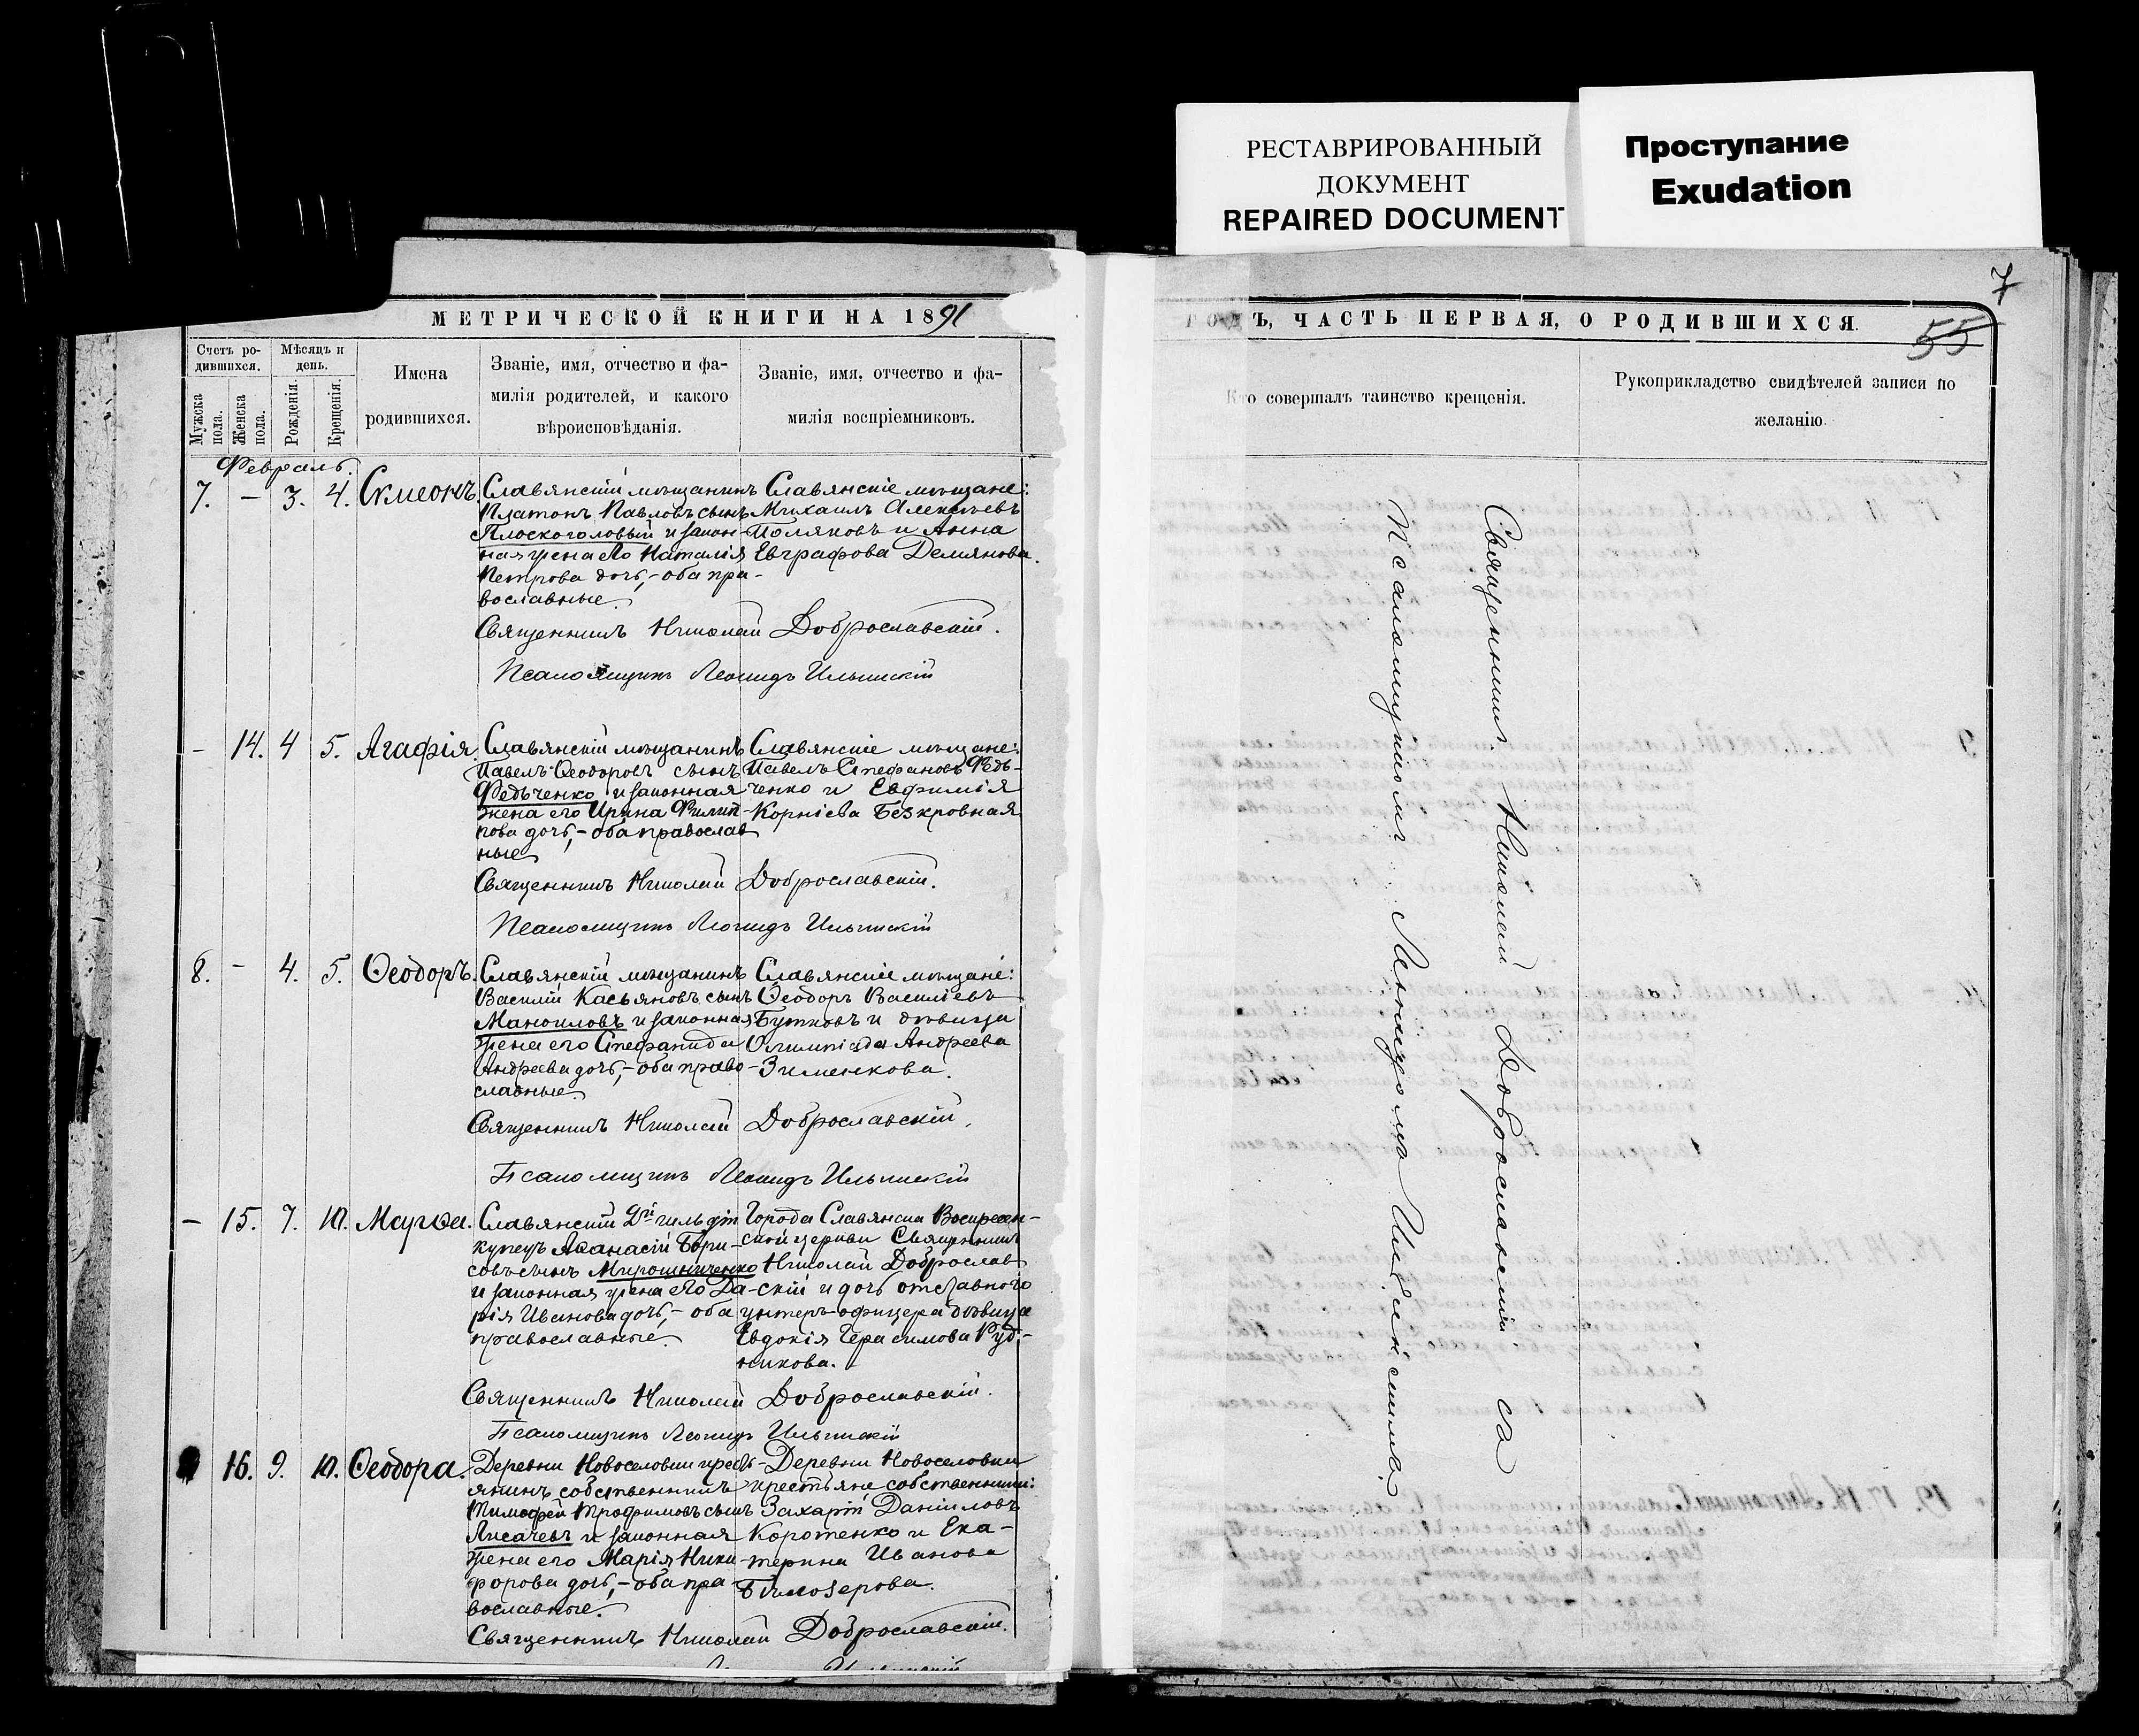 РЕСТАВРИРОВАННЫЙ
ДОКУМЕНТ
REPAIRED DOCUMENT
Проступание
Exudation
7
55
МЕТРИЧЕСКОЙ КНИГИ НА 1891
Счетъ ро-
дившихся.
Мужска
пола.
Женска
пола.
Мѣсяцъ и
день.
Рожденія.
Крещенія.
Имена
родившихся.
Званіе, имя, отчество и фа-
милія родителей, и какого
вѣроисповѣданія.
Званіе, имя, отчество и фа-
милія воспріемниковъ.
Февраль.
7. – 3. 4. Симеонъ.
Славянскій мѣщанинъ
Платонъ Павловъ сынъ
Плоскоголовый и закон-
ная жена его Наталія
Петрова дочь, – оба пра-
вославные.
Славянскіе мѣщане:
Михаилъ Алексѣевъ
Поляковъ и Анна
Евграфова Демянова.
Священникъ Николай Доброславскій.
Псаломщикъ Леонидъ Ильинскій
– 14. 4 5. Агафія
Славянскій мѣщанинъ
Павелъ Ѳеодоровъ сынъ
Федьченко и законная
жена его Ирина Филип-
пова дочь, – оба православ
ные
Славянскіе мѣщане:
Павелъ Стефановъ Федь-
ченко и Евфимія
Корніева Безкровная
Священникъ Николай Доброславскій.
Псаломщикъ Леонидъ Ильинскій
8. – 4. 5. Ѳеодоръ.
Славянскій мѣщанинъ
Василій Касьяновъ сынъ
Маноиловъ и законная
жена его Стефанида
Андреева дочь, – оба право-
славные.
Славянскіе мѣщане:
Ѳеодоръ Василіевъ
Бутковъ и дѣвица
Олимпіада Андреева
Зименкова.
Священникъ Николай Доброславскій.
Псаломщикъ Леонидъ Ильинскій
– 15. 7. 10. Марѳа.
Славянскій 2й гильдіи
купецъ Аѳанасій Бори-
совъ сынъ Мирошниченко
и законная жена его Да-
рія Иванова дочь, – оба
православные.
Города Славянска Воскресен-
ской церкви Священникъ
Николай Доброслав
скій и дочь отставного
унтеръ-офицера дѣвица
Евдокія Герасимова Руд-
никова.
Священникъ Николай Доброславскій.
Псаломщикъ Леонидъ Ильинскій
16. 9. 10. Ѳеодора.
Деревни Новоселовки кресть-
янинъ собственникъ
Тимофей Трофимовъ сынъ
Лисачевъ и законная
жена его Марія Ники-
форова дочь, – оба пра-
вославные.
Деревни Новоселовки
крестьяне собственники:
Захарій Даніиловъ
Коротенко и Ека-
терина Иванова
Бѣлозерова.
Священникъ Николай Доброславскій.
ГОДЪ, ЧАСТЬ ПЕРВАЯ, О РОДИВШИХСЯ.
Кто совершалъ таинство крещенія.
Рукоприкладство свидѣтелей записи по
желанію.
Священникъ Николай Доброславскій съ
Псаломщикомъ Леонидомъ Ильинскимъ.